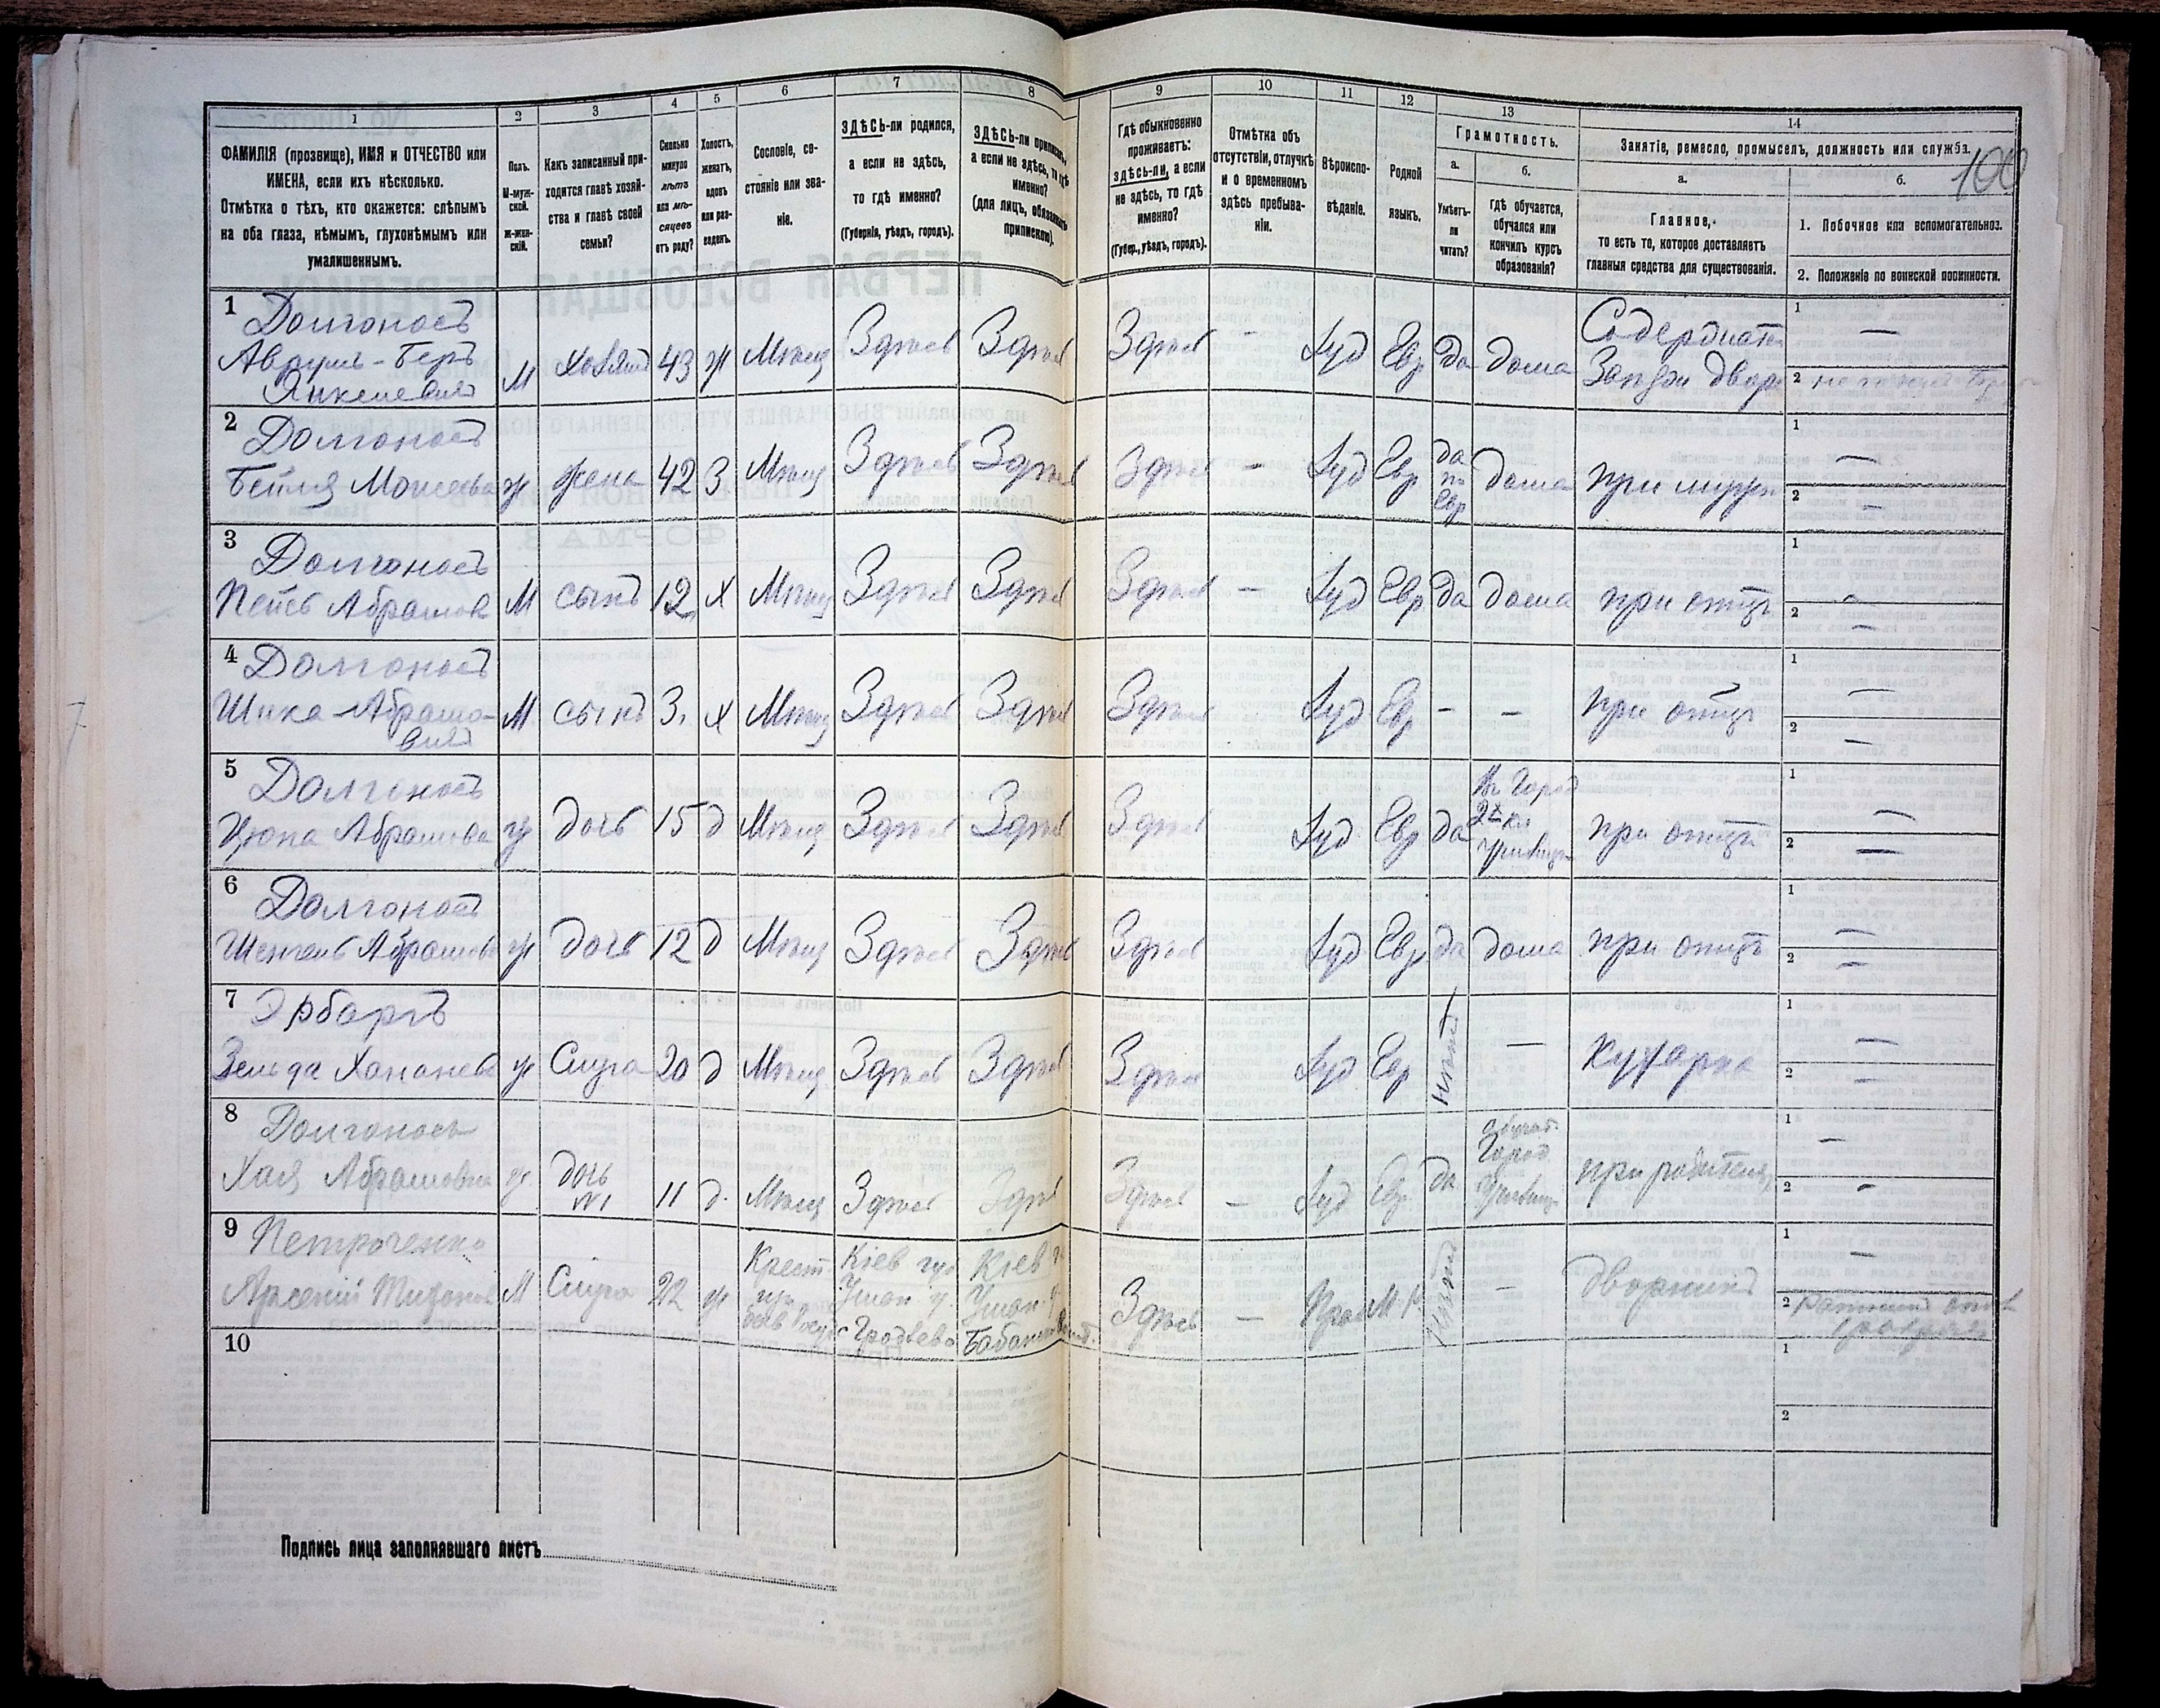 1
2
3
4
5
6
7
8
ФАМИЛІЯ (прозвище), ИМЯ и ОТЧЕСТВО или
ИМЕНА, если ихъ нѣсколько.
Отмѣтка о тѣхъ, кто окажется: слѣпымъ
на оба глаза, нѣмымъ, глухонѣмымъ или
умалишеннымъ.
Полъ.
М-муж-
ской.
Ж-жен-
скій.
Какъ записанный при-
ходится главѣ хозяй-
ства и главѣ своей
семьи?
Сколько
минуло
лѣтъ
или мѣ-
сяцевъ
отъ роду?
Холостъ,
женатъ,
вдовъ
или раз-
веденъ.
Сословіе, со-
стояніе или зва-
ніе.
ЗДѢСЬ-ли родился,
а если не здѣсь,
то гдѣ именно?
(Губернія, уѣздъ, городъ).
ЗДѢСЬ-ли приписанъ,
а если не здѣсь, то гдѣ
именно?
(для лицъ, обязанныхъ
припискою).
9
10
11
12
13
14
Гдѣ обыкновенно
проживаетъ:
здѣсь-ли, а если
не здѣсь, то гдѣ
именно?
(Губер., уѣздъ, городъ).
Отмѣтка объ
отсутствіи, отлучкѣ
и о временномъ
здѣсь пребыва-
ніи.
Вѣроиспо-
вѣданіе.
Родной
языкъ.
Грамотность.
а.
Умѣетъ-
ли
читать?
б.
Гдѣ обучается,
обучался или
кончилъ курсъ
образованія?
Занятіе, ремесло, промыселъ, должность или служба.
100
а.
Главное,
то есть то, которое доставляетъ
главныя средства для существованія.
б.
1. Побочное или вспомогательное.
2. Положеніе по воинской повинности.
1 Долгоносъ
Аврумъ-Беръ
Янкелевичъ
М Хозяинъ 43 ж Мѣщ Здѣсь Здѣсь Здѣсь - Іуд Евр да дома
Содержатель
1 —
2
2 Долгоносъ
Бейля Моисеева ж жена 42 З Мѣщ Здѣсь Здѣсь Здѣсь - Іуд Евр
да
по
Евр
дома при мужѣ
1 —
2 —
3 Долгоносъ
М сынъ 12 х Мѣщ Здѣсь Здѣсь Здѣсь — Іуд Евр да дома при отцѣ
1 -
2 —
4 Долгоносъ
Шика Абрамо-
вичъ
М сынъ 3. х Мѣщ Здѣсь Здѣсь Здѣсь Іуд Евр - - при отцѣ
1 —
2 —
5 Долгоносъ
Цюпа Абрамова ж дочь 15 д Мѣщ Здѣсь Здѣсь Здѣсь Іуд Евр да
Въ Город
2х кл
училищѣ
при отцѣ
1 —
2 —
6 Долгоносъ
Шенцель Абрамова ж дочь 12 д Мѣщ Здѣсь Здѣсь Здѣсь Іуд Евр да дома при отцѣ
1 —
2 —
7 Эрбаргъ
Зельда Хананев ж Слуга 20 д Мѣщ Здѣсь Здѣсь Здѣсь Іуд Евр нѣтъ — Кухарка
1 —
2 —
8 Долгоносъ
Хая Абрамовна ж.
дочь
№1
11 д. Мѣщ Здѣсь Здѣсь Здѣсь - Іуд Евр. да
обучает.
Город
училищ
при родителях
1 —
2 -
9 Петроченко
Арсеній М Слуга 22 ж
Крест.
Кіев губ
Уман. у.
Гродзево
Кіев г
Уман. у
Здѣсь — Прав М. Р. — дворникъ
1 —
2 ратникъ опол
10
1
2
Подпись лица заполнявшаго листъ